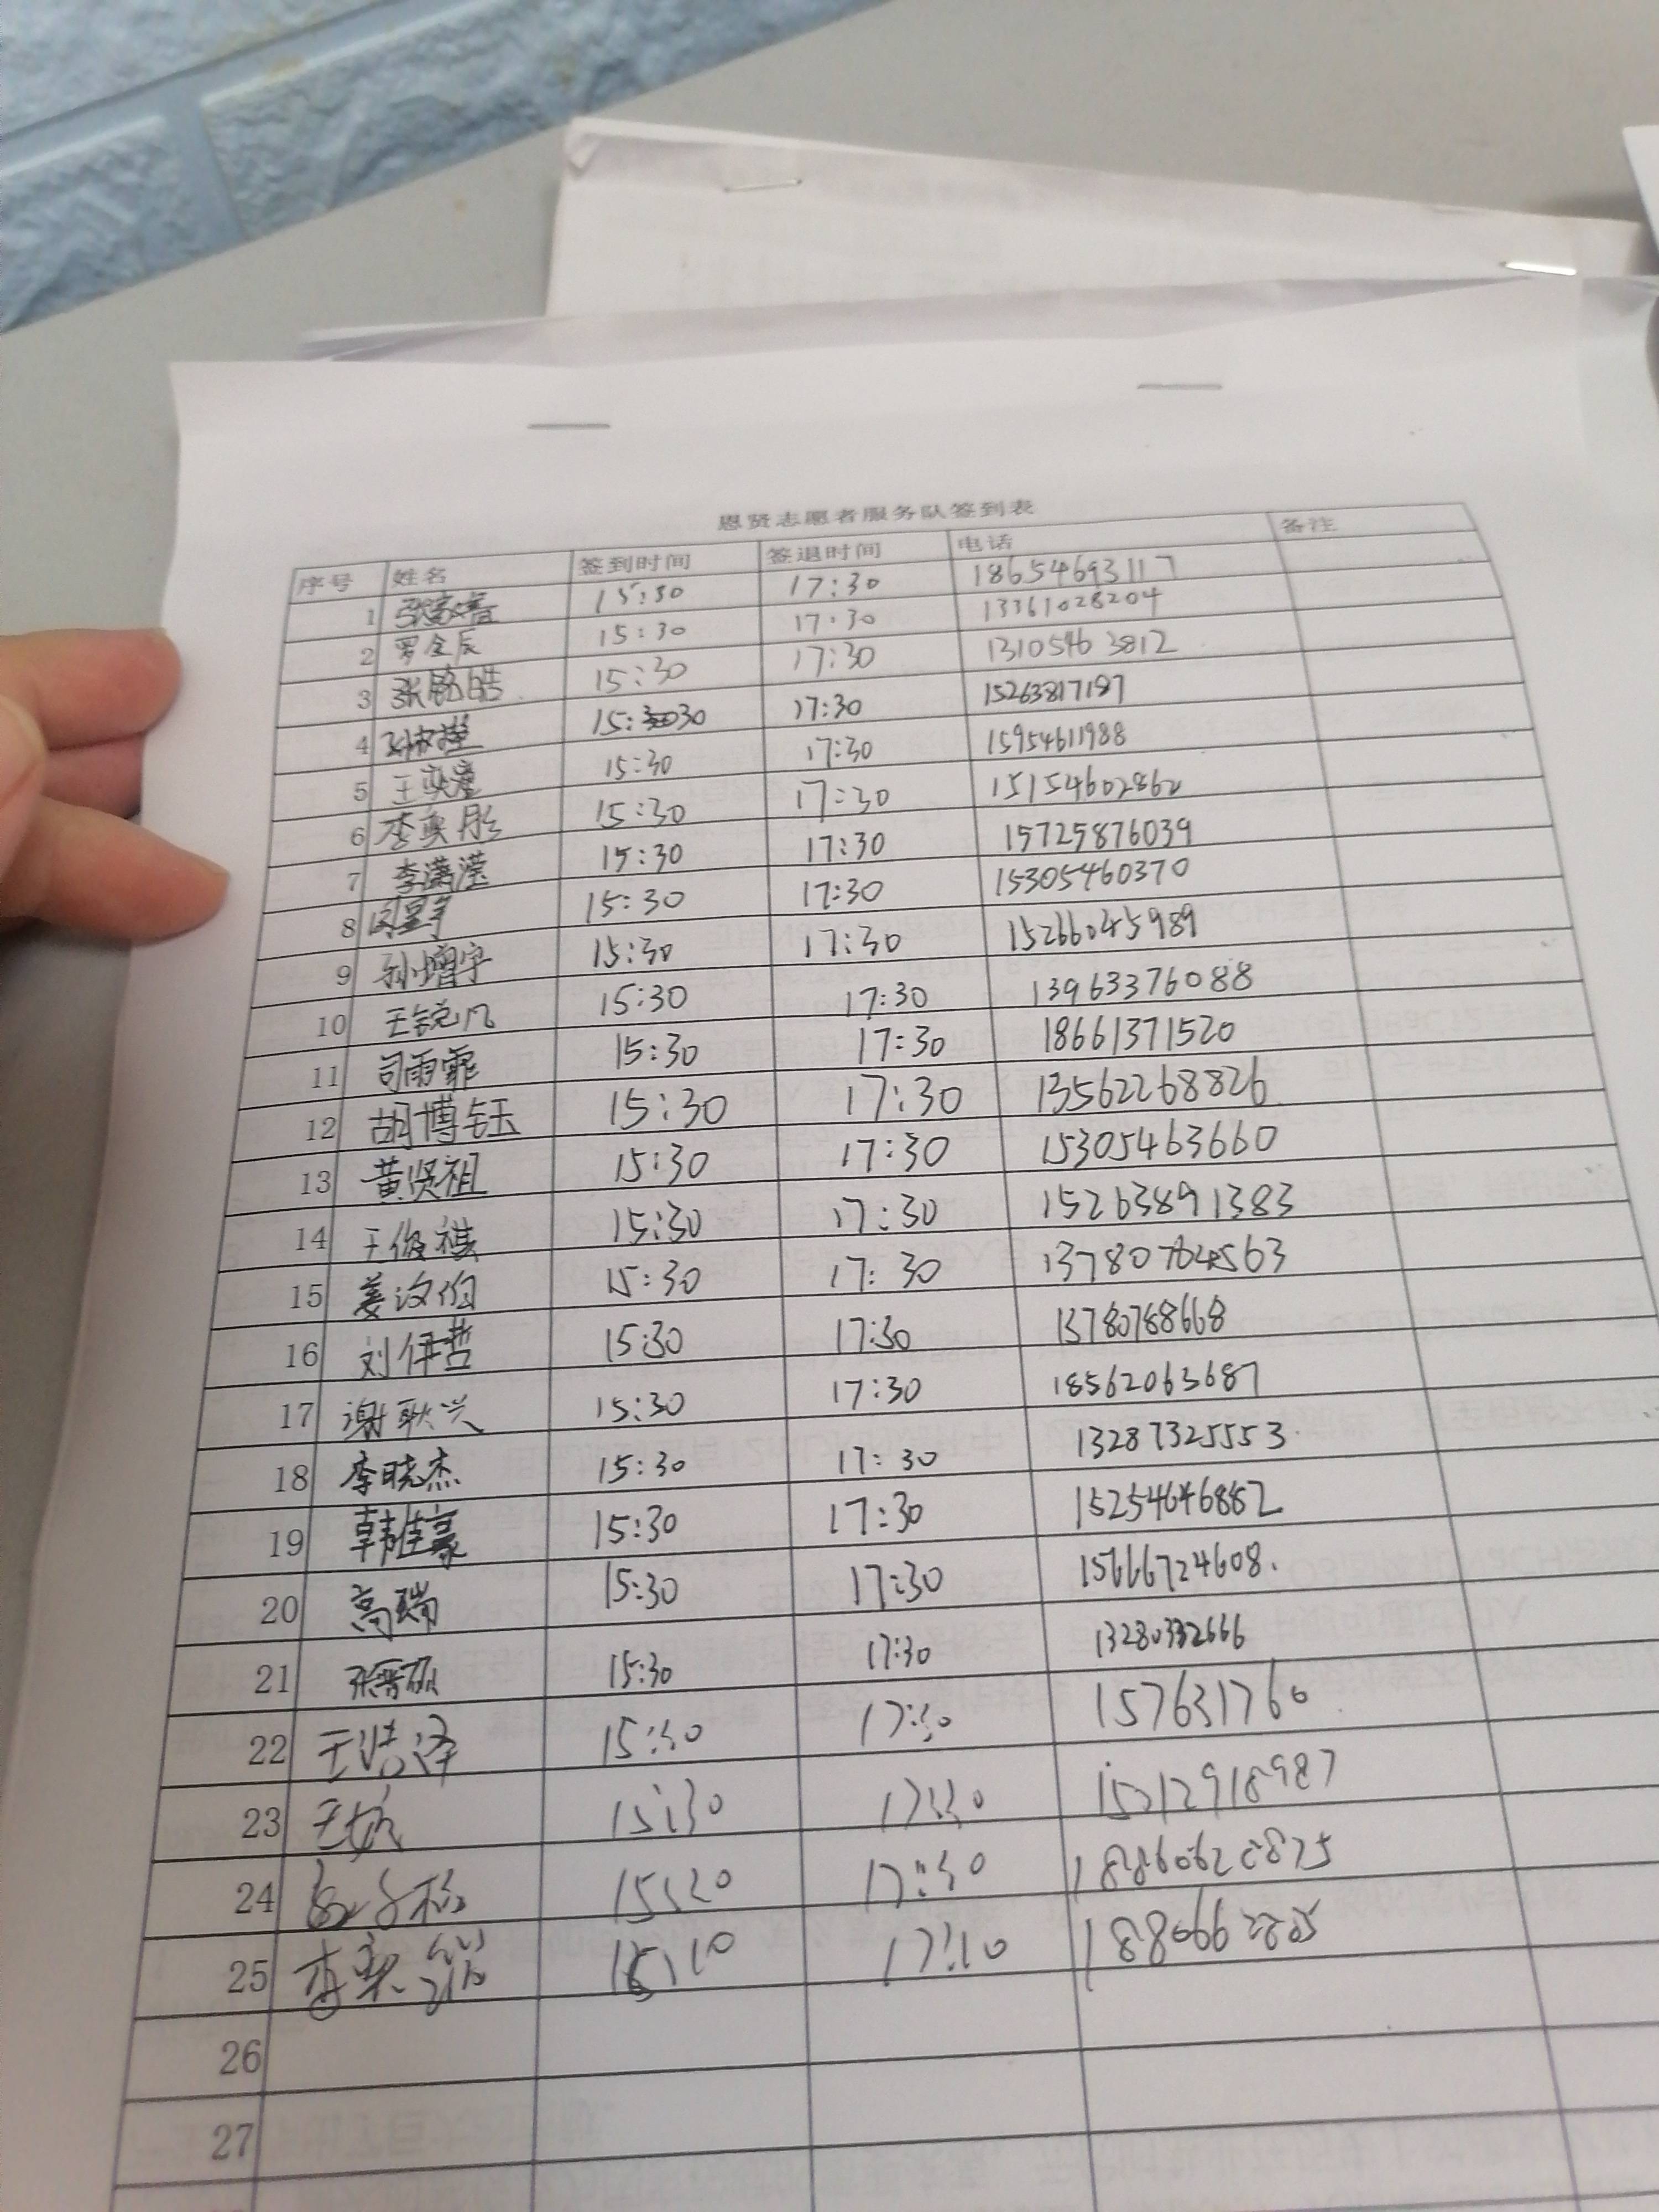 恩贤志愿者服务队签到表
序号 姓名 签到时间 签退时间 电话 备注
1 15:30 17:30 18654693117
2 罗金辰 15:30 17:30 13361028204
3 张铭皓 15:30 17:30 13105463812
4 15:30 17:30 15263817187
5 王奕 15:30 17:30 15954611988
6 李奕彤 15:30 17:30 15154602862
7 李潇滢 15:30 17:30 15725876039
8 15:30 17:30 15305460370
9 孙增宇 15:30 17:30 15266045989
10 王锐凡 15:30 17:30 13963376088
11 司雨霏 15:30 17:30 18661371520
12 胡博钰 15:30 17:30 13562268826
13 黄贤祖 15:30 17:30 15305463660
14 王俊祺 15:30 17:30 15263891383
15 姜汶伯 15:30 17:30 13780764563
16 刘伊哲 15:30 17:30 13780788668
17 谢耿兴 15:30 17:30 18562063687
18 李晓杰 15:30 17:30 13287325553
19 韩佳豪 15:30 17:30 15254646882
20 高瑞 15:30 17:30 15666724608.
21 15:30 17:30 13280332666
22 王浩泽 15:30 17:30 157631760
23 15:30 17:30
24 17:30
25 17:10
26
27